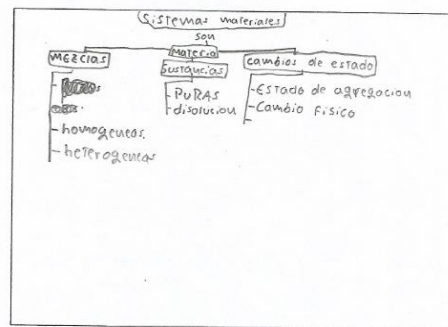 Sistemas materiales
son
Materia
MEZClAS
- homogeneas.
- heterogeneas
Sustancias
- PuRAS
- disolucion
Cambios de estado
- Estado de agregacion
- Cambio Fisico